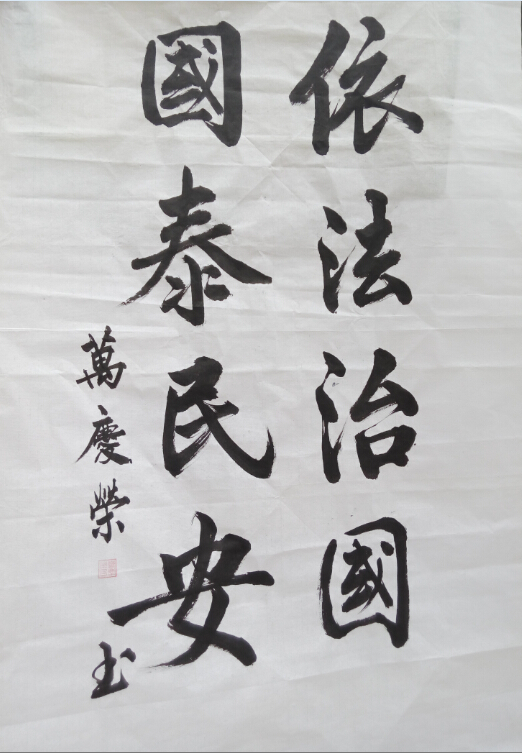 依法治國
國泰民安
萬慶榮 书